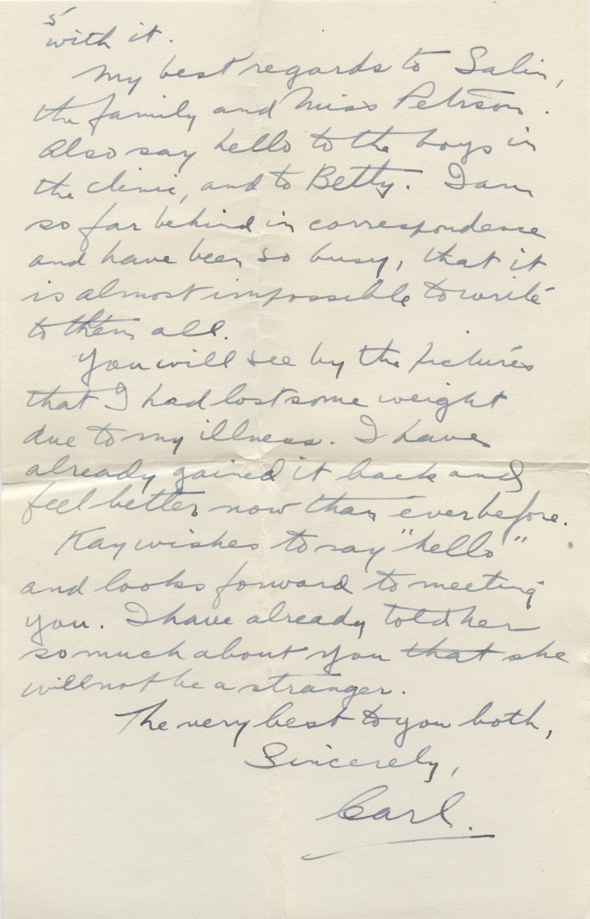 5
with it.
My best regards to Salin,
the family and Miss Petrson.
Also say hello to the boys in
the clinic, and to Betty. I am
so far behind in correspondence
and have been so busy, that it
is almost impossible to write
to them all.
You will see by the pictures
that I had lost some weight
due to my illness. I have
already gained it back and
feel better now than ever before.
Kay wishes to say "hello"
and looks forward to meeting
you. I have already told her
so much about you that she
will not be a stranger.
The very best to you both,
Sincerely,
Carl.